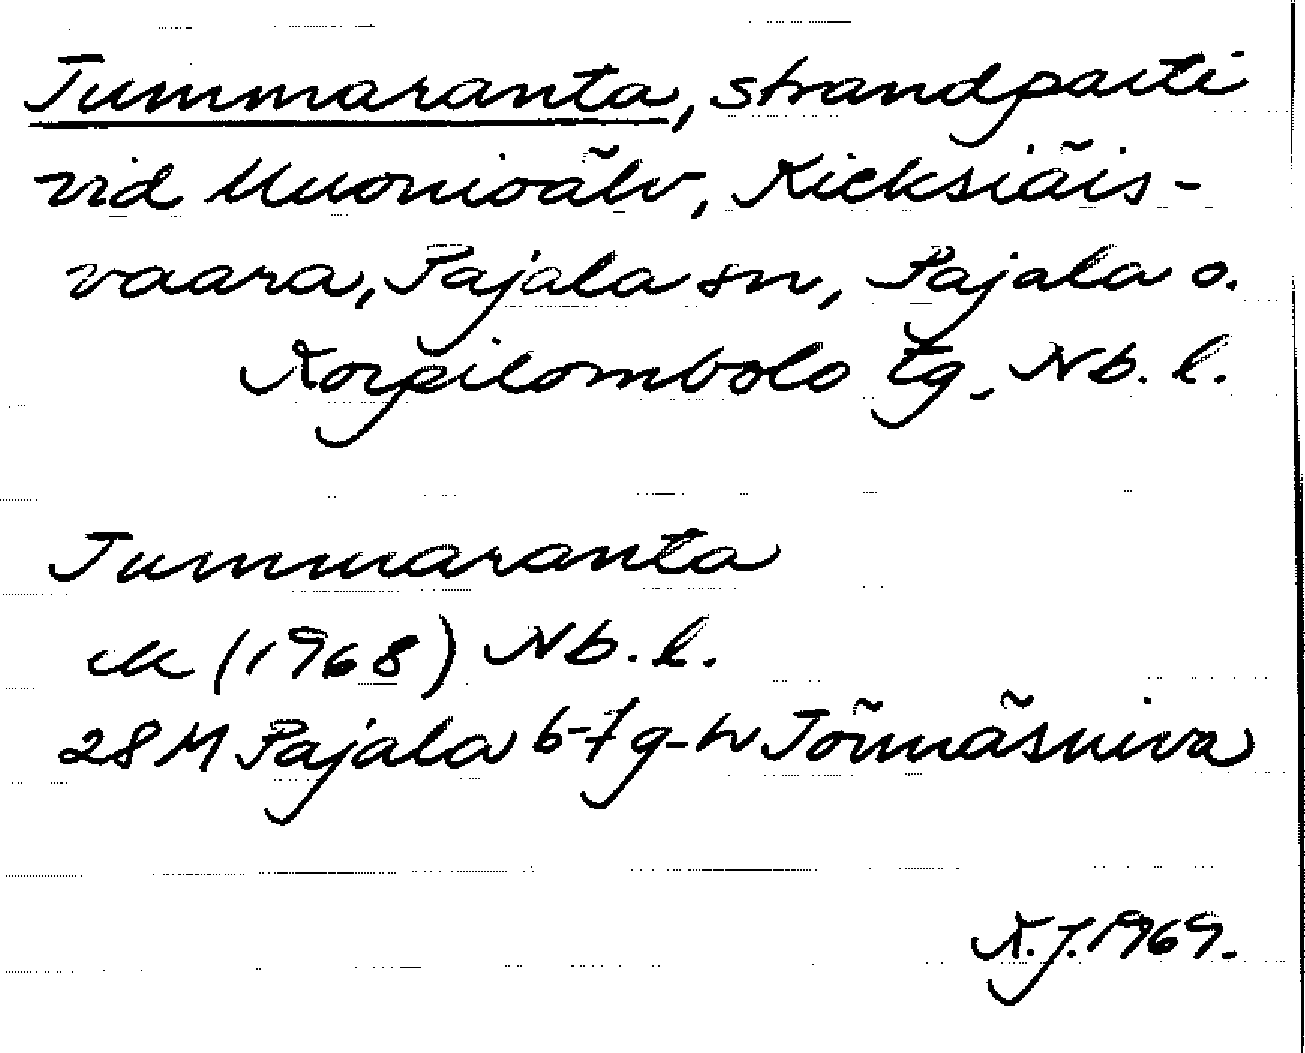 Tummaranta, strandparti
vid Muonioälv, Kieksiäis-
vaara, Pajala sn, Pajala o.
Korpilombolo tg. Nb. l.
Tummaranta
ek (1968) Nb. l.
28 M Pajala 6-7 g-h Jönnäsniva
K.J. 1969.